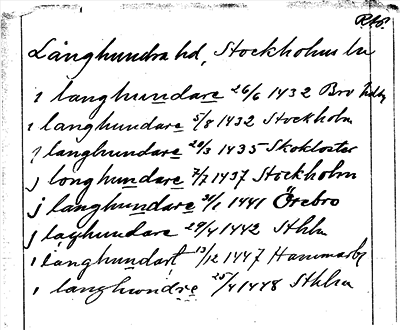 RAP.
Långhundra hd, Stockholms län
i langhundare 26/6 1432 Bro
i langhundare 5/8 1432 Stockholm
j langhundare 29/3 1435 Skokloster
j longhundare 7/7 1437 Stockholm
j langhundare 31/1 1441 Örebro
j laghundare 29/4 1442 Sthlm
i langhundart 13/12 1447 Hammarby
i langhwndre 25/4 1448 Sthlm